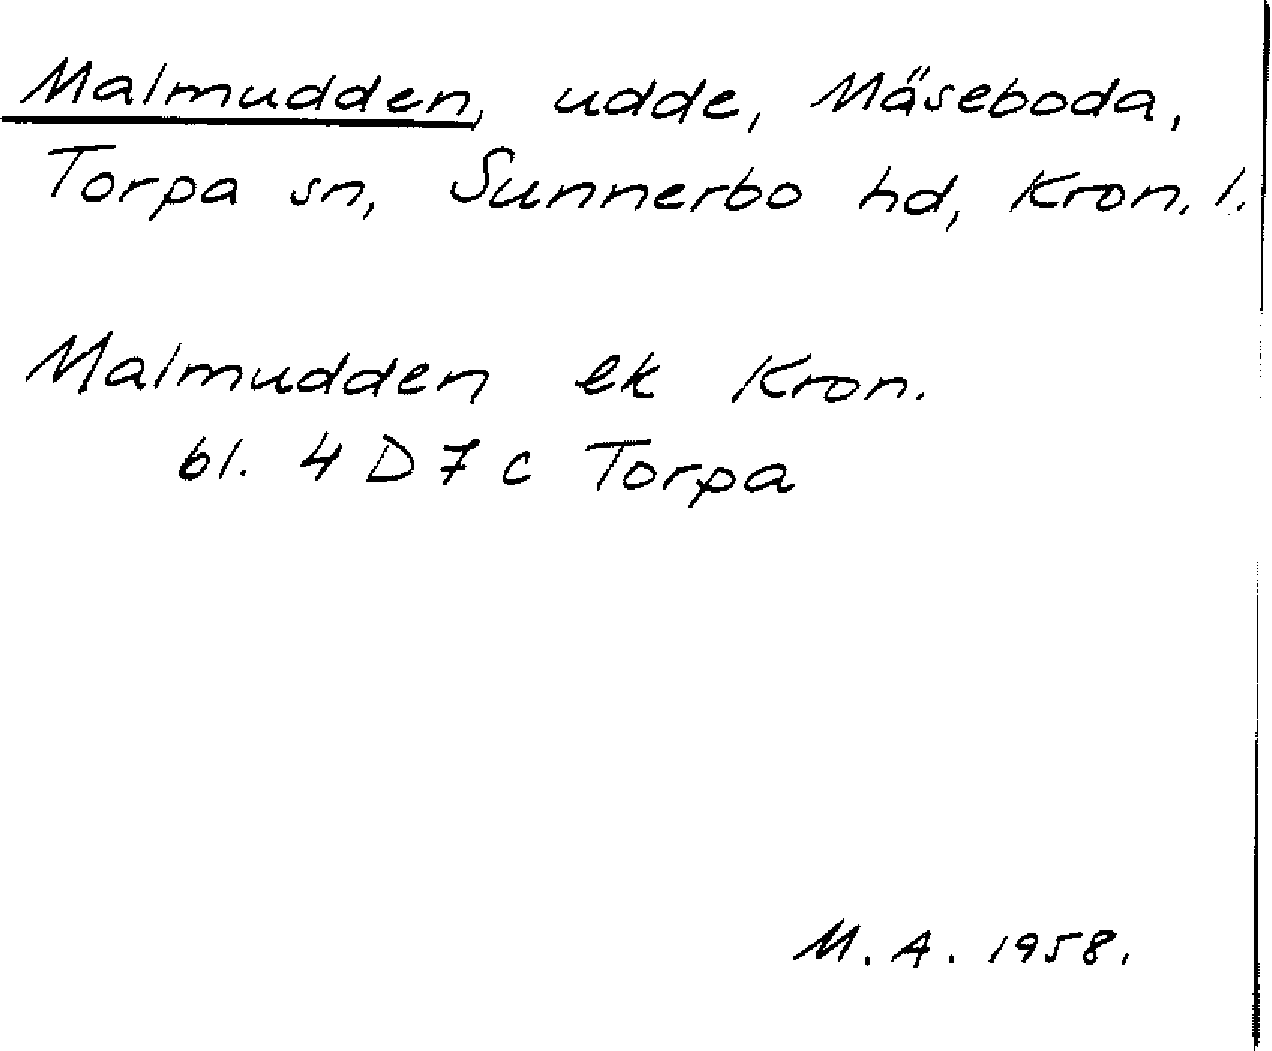 Malmudden, udde, Mäseboda,
Torpa sn, Sunnerbo hd, Kron. l.
Malmudden ek Kron.
bl. 4 D 7 c Torpa
M. A. 1958.